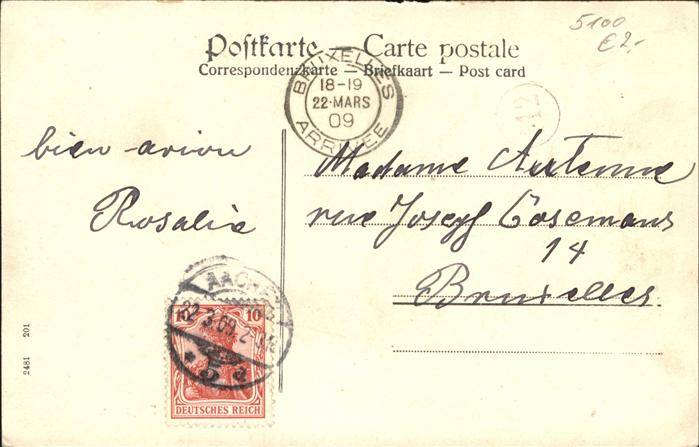 5100
€2,-
Postkarte — Carte postale
Correspondenzkarte — Briefkaart — Post card
BRUXELLES
18-19
22·MARS
09
ARRIVÉE
12
bien
Rosalie
Madame
rue Joseph Cosemans
14
Bruxelles
AACHEN
22.3.09.2
10 10
DEUTSCHES REICH
2481 201